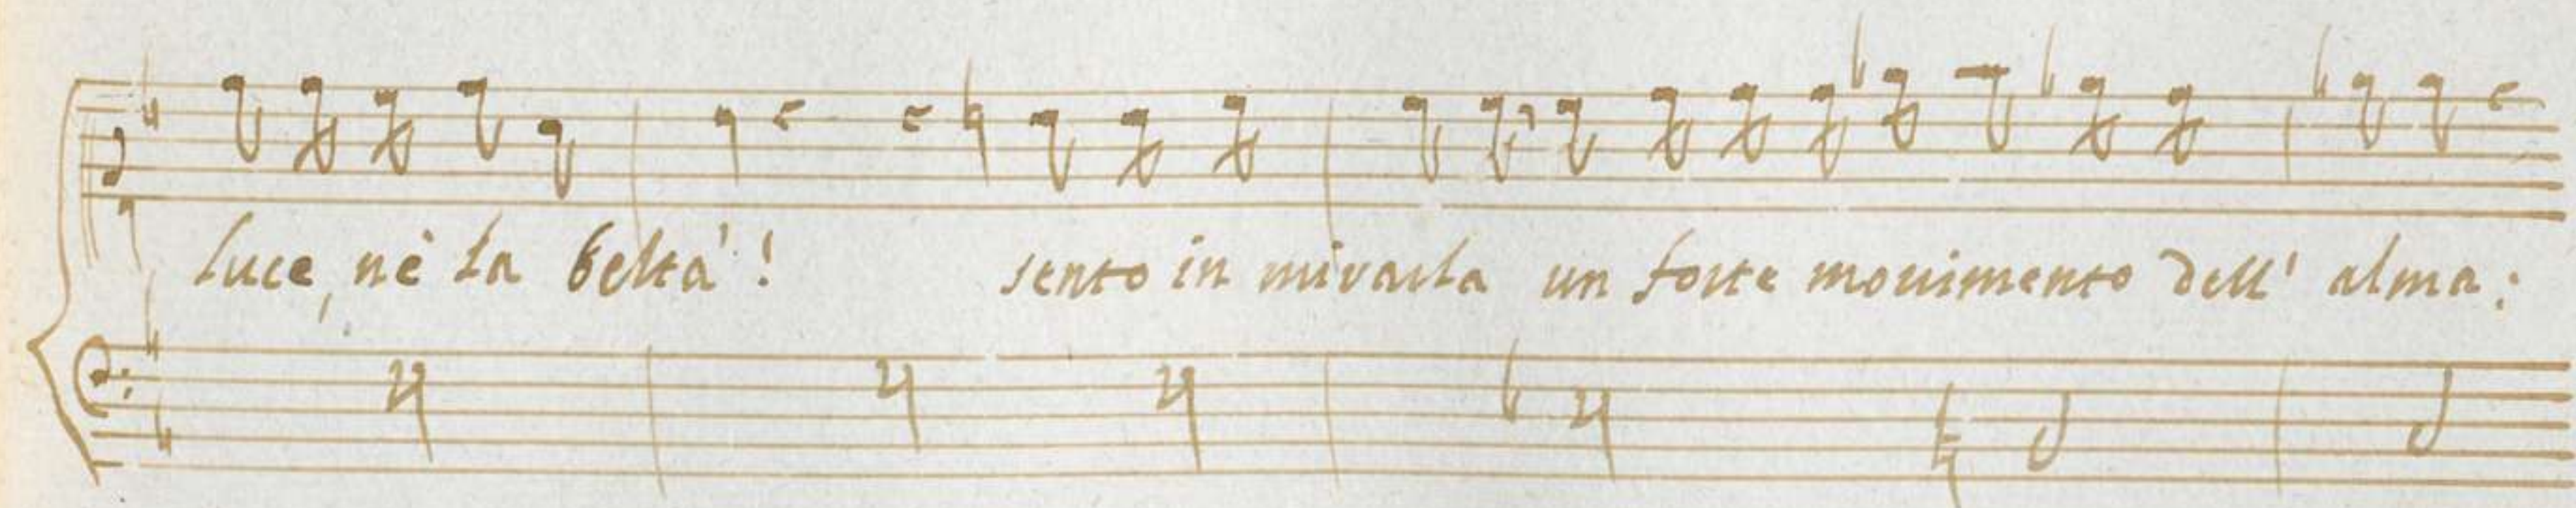 luce, nè la beltà! sento in mirarla un forte movimento dell' alma: